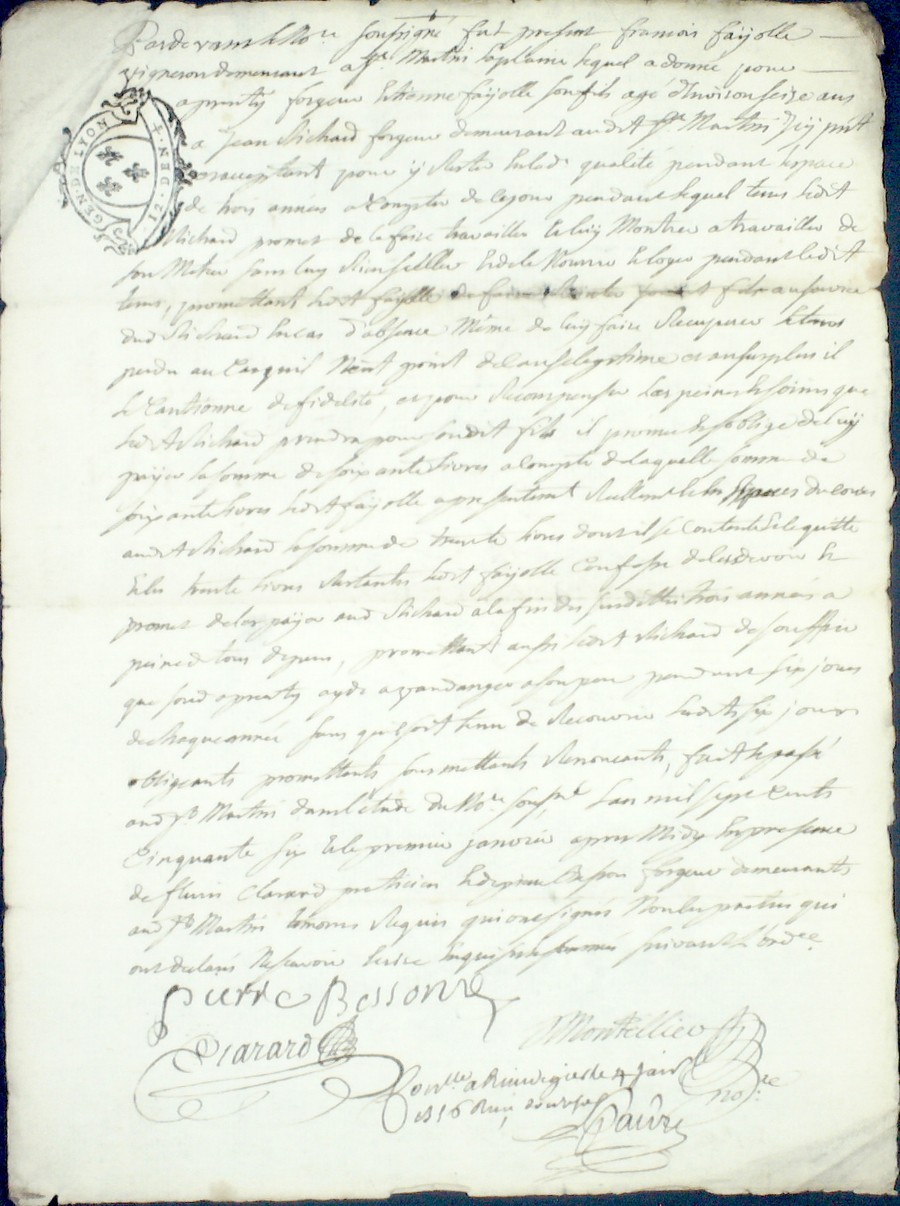 Pardevant le No.re soussigné fut present francois fayolle
vigneron demeurant a St. Martin laplaine lequel a donné pour
aprentif forgeur Estienne fayolle son fils age d'Environ seize ans
GEN. DE LYON
12. DEN.
a Jean Richard forgeur demeurant audit St. Martin Icy pnt
acceptant pour y Rester Enlad. qualité pendant lespace
de trois années a Compter de cejour pendant lequel tems ledt
Richard promet de le faire travailler et luy Montrer a travailler de
son Metier sans luy Rien Celler et de le Nourrir et loger pendant ledit
tems, promettant ledt fayolle de faire sondt fils au service
dud Richard Encas d'absence Méme de luy faire Recuperer le tems
perdu au Cas quil N'eut point de Cause legitime et au surplus il
le Cautionne de fidelité, et pour Recompenser des peines et soins que
ledt Richard prendra pour sondit fils il promet et s'oblige de luy
payer la somme de soixante livres a Compte de laquelle somme de
soixante livres ledt fayolle a presentement Reellement En Especes du cours
audt Richard la somme de trente livres dont il se Contente et le quitte
Et les trente livres Restantes ledt fayolle Confesse de les devoir et
promet de les payer aud Richard a la fin des susdittes trois années a
peine de tous depens, promettant aussi ledt Richard de souffrir
que sond aprentif ayde a vandanger a son pere pendant six jours
de chaque année sans qu'il soit tenu de Recouvrir lesdts six jours
obligeants promettants soumettants Renoncants, fait et passé
aud St. Martin dans l'étude du No.re soussné Lan mil sept Cents
Cinquante six et le premier janvier apres Midy En presence
de fleuri Clarard praticien et de pierre Besson forgeur demeurants
aud St. Martin temoins Requis qui ont signés Non les parties qui
ont declaré Ne scavoir Ecrire Enquis et sommés suivant L'ord.ce
pierre Besson
Clarard
Montellier
no.re
Con.lle a Rivedegier le 4 janv.
1756 Reçu douze s.
Favre